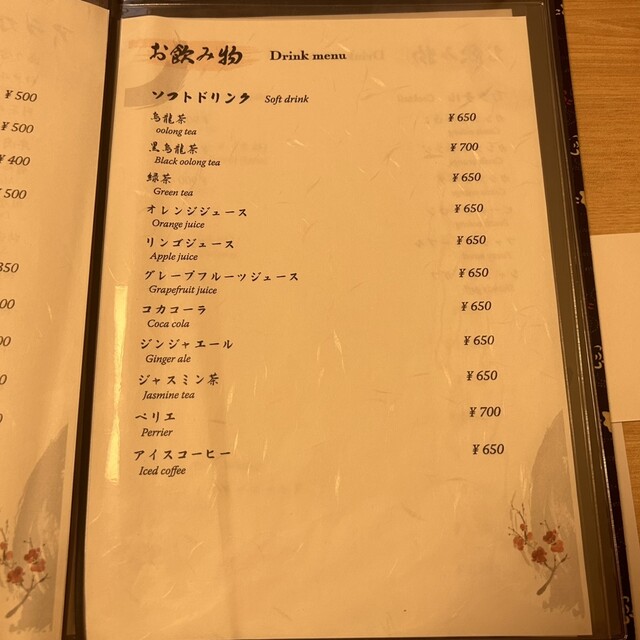 お飲み物 Drink menu
ソフトドリンク Soft drink
烏龍茶 ¥650
oolong tea
黒烏龍茶 ¥700
Black oolong tea
緑茶 ¥650
Green tea
オレンジジュース ¥650
Orange juice
リンゴジュース ¥650
Apple juice
グレープフルーツジュース ¥650
Grapefruit juice
コカコーラ ¥650
Coca cola
ジンジャエール ¥650
Ginger ale
ジャスミン茶 ¥650
Jasmine tea
ペリエ ¥700
Perrier
アイスコーヒー ¥650
Iced coffee
¥500
¥500
¥400
¥500